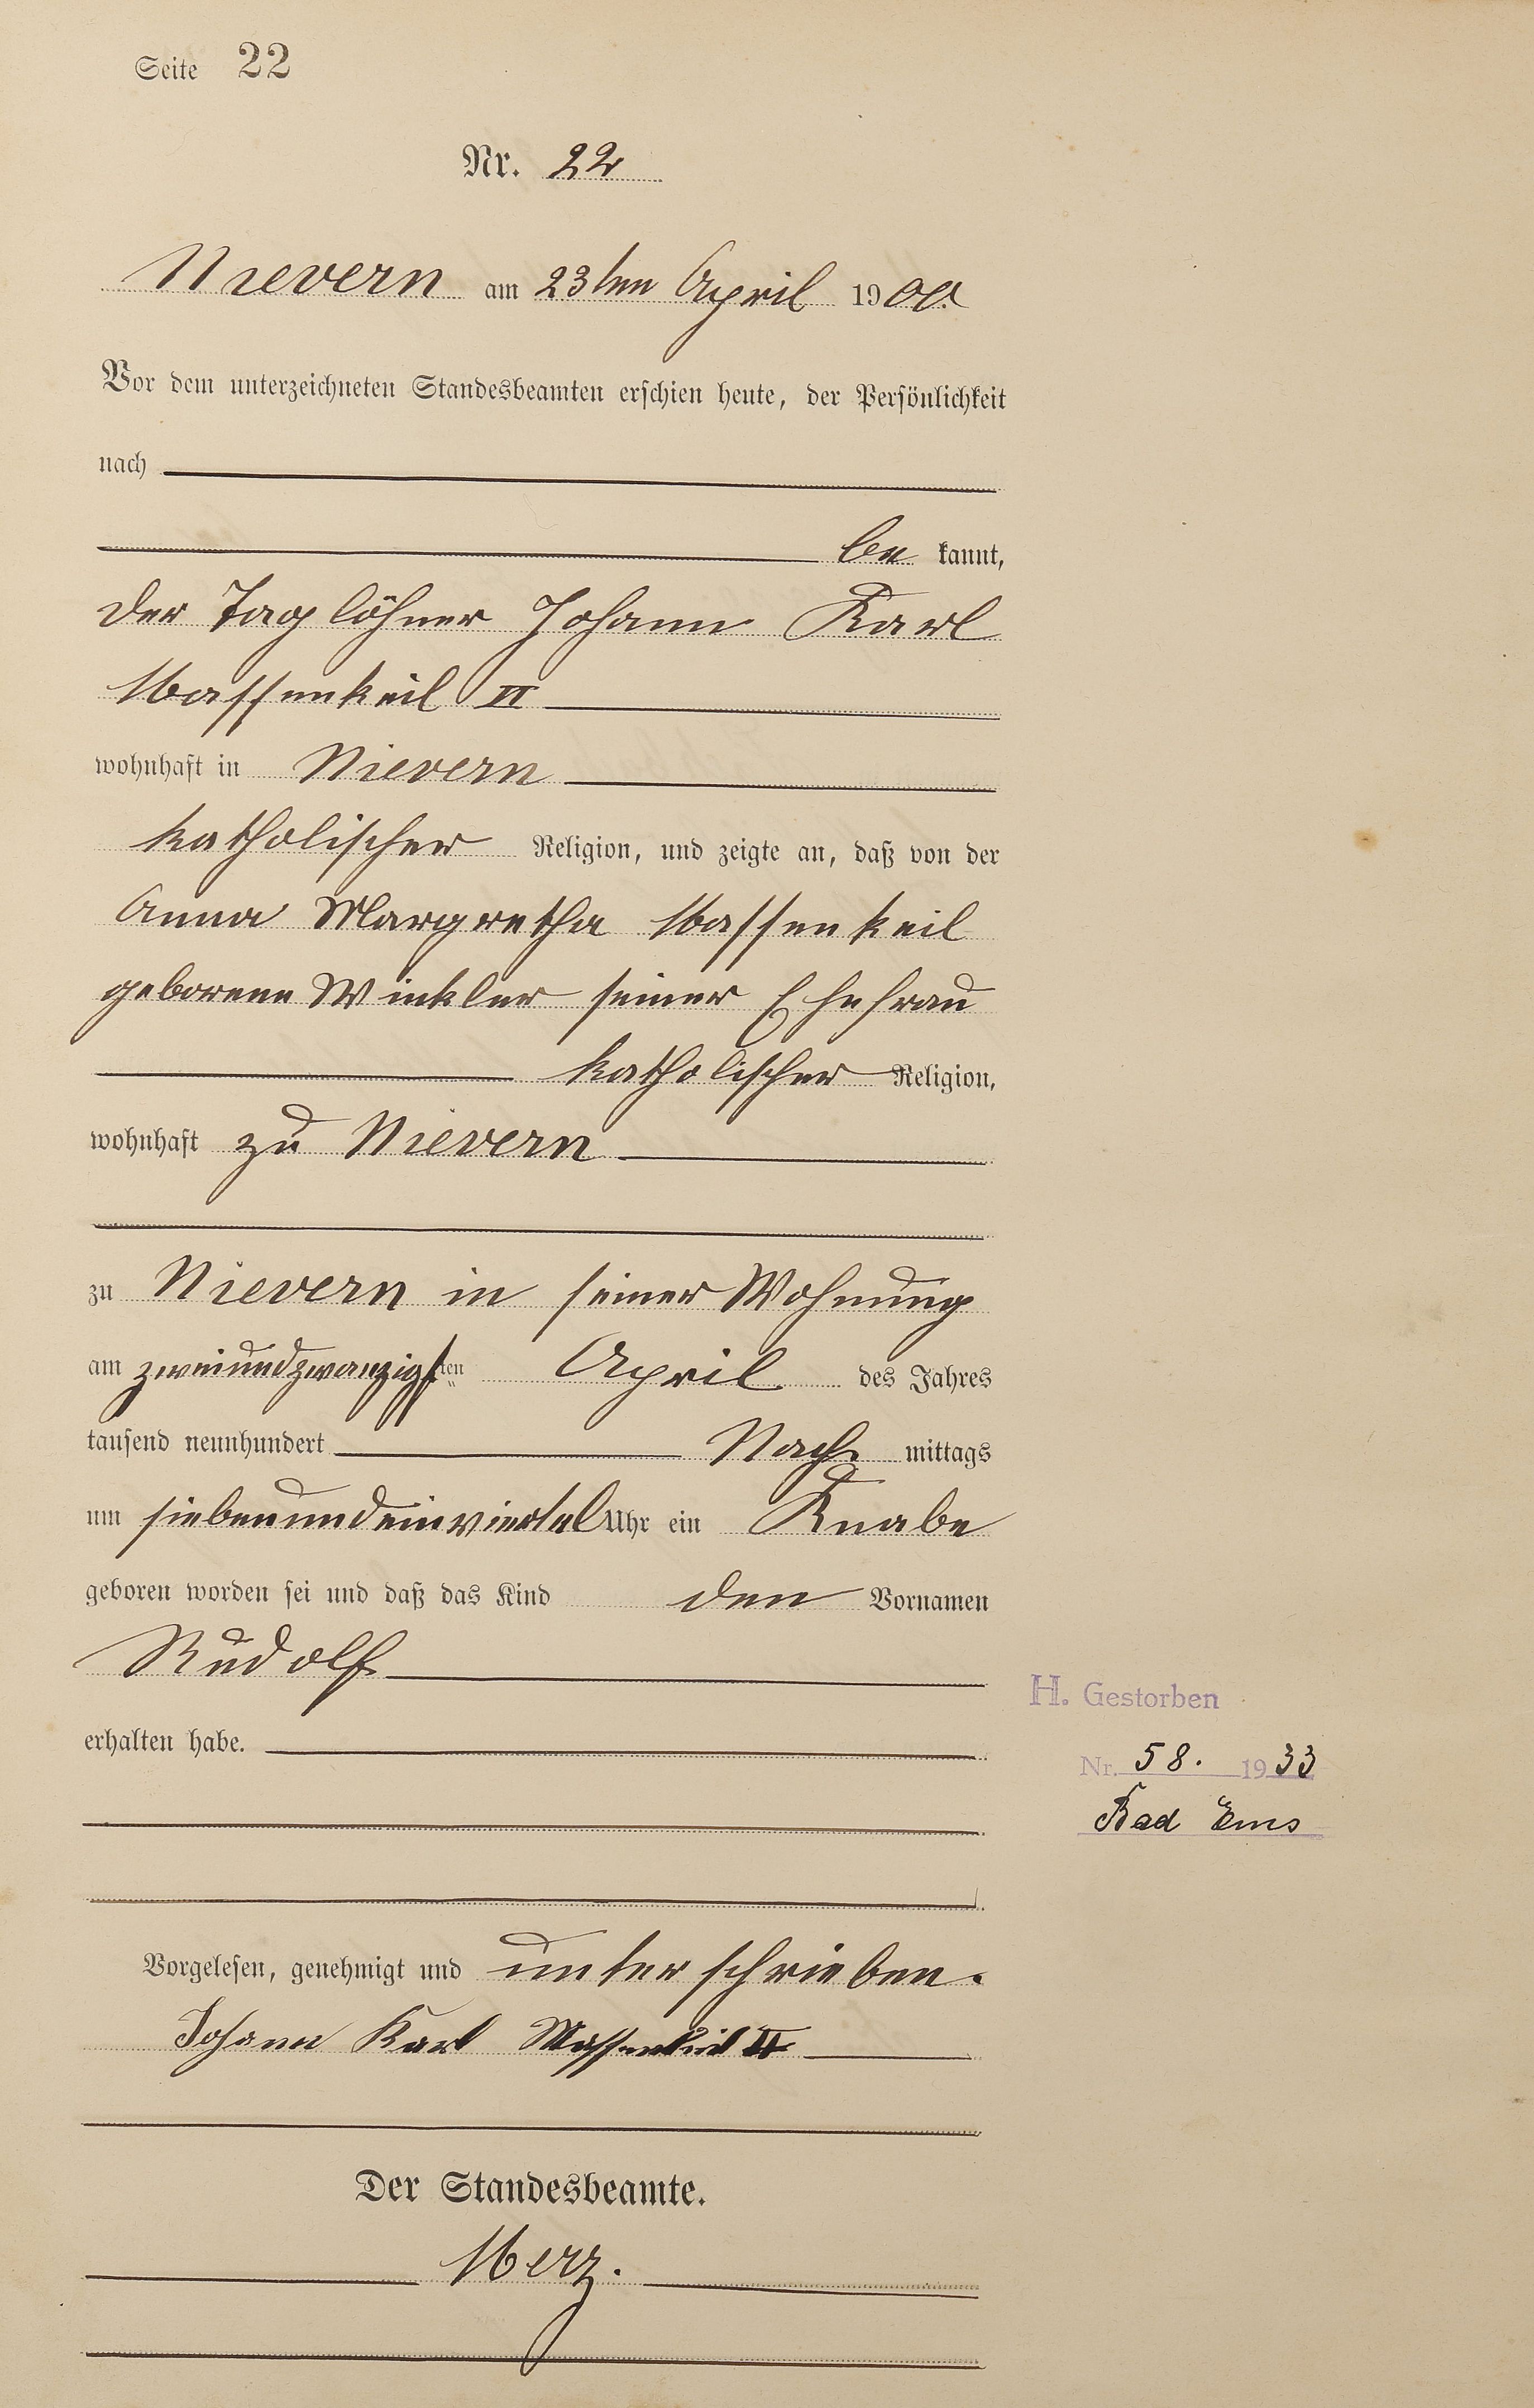 Seite 22
Nr. 22
Nievern am 23ten April 1900
Vor dem unterzeichneten Standesbeamten erschien heute, der Persönlichkeit
nach
be kannt,
der Taglöhner Johann Karl
Massenkeil II
wohnhaft in Nievern
katholischer Religion, und zeigte an, daß von der
Anna Margretha Massenkeil
geborene Winkler seiner Ehefrau
katholischer Religion,
wohnhaft zu Nievern
zu Nievern in seiner Wohnung
am zweiundzwanzigsten April des Jahres
tausend neunhundert Nach mittags
um siebenundeinviertel Uhr ein Knabe
geboren worden sei und daß das Kind den Vornamen
Rudolf
H. Gestorben
erhalten habe.
Nr. 58. 1933
Bad Ems
Vorgelesen, genehmigt und unterschrieben.
Johann Karl Massenkeil II
Der Standesbeamte.
Merz.